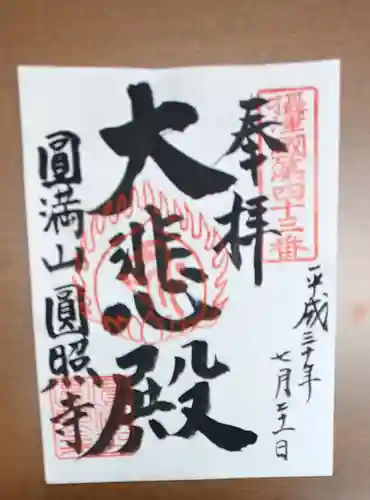 奉拝
摂国第四十三番
平成三十年
七月二十一日
大悲殿
圓満山圓照寺